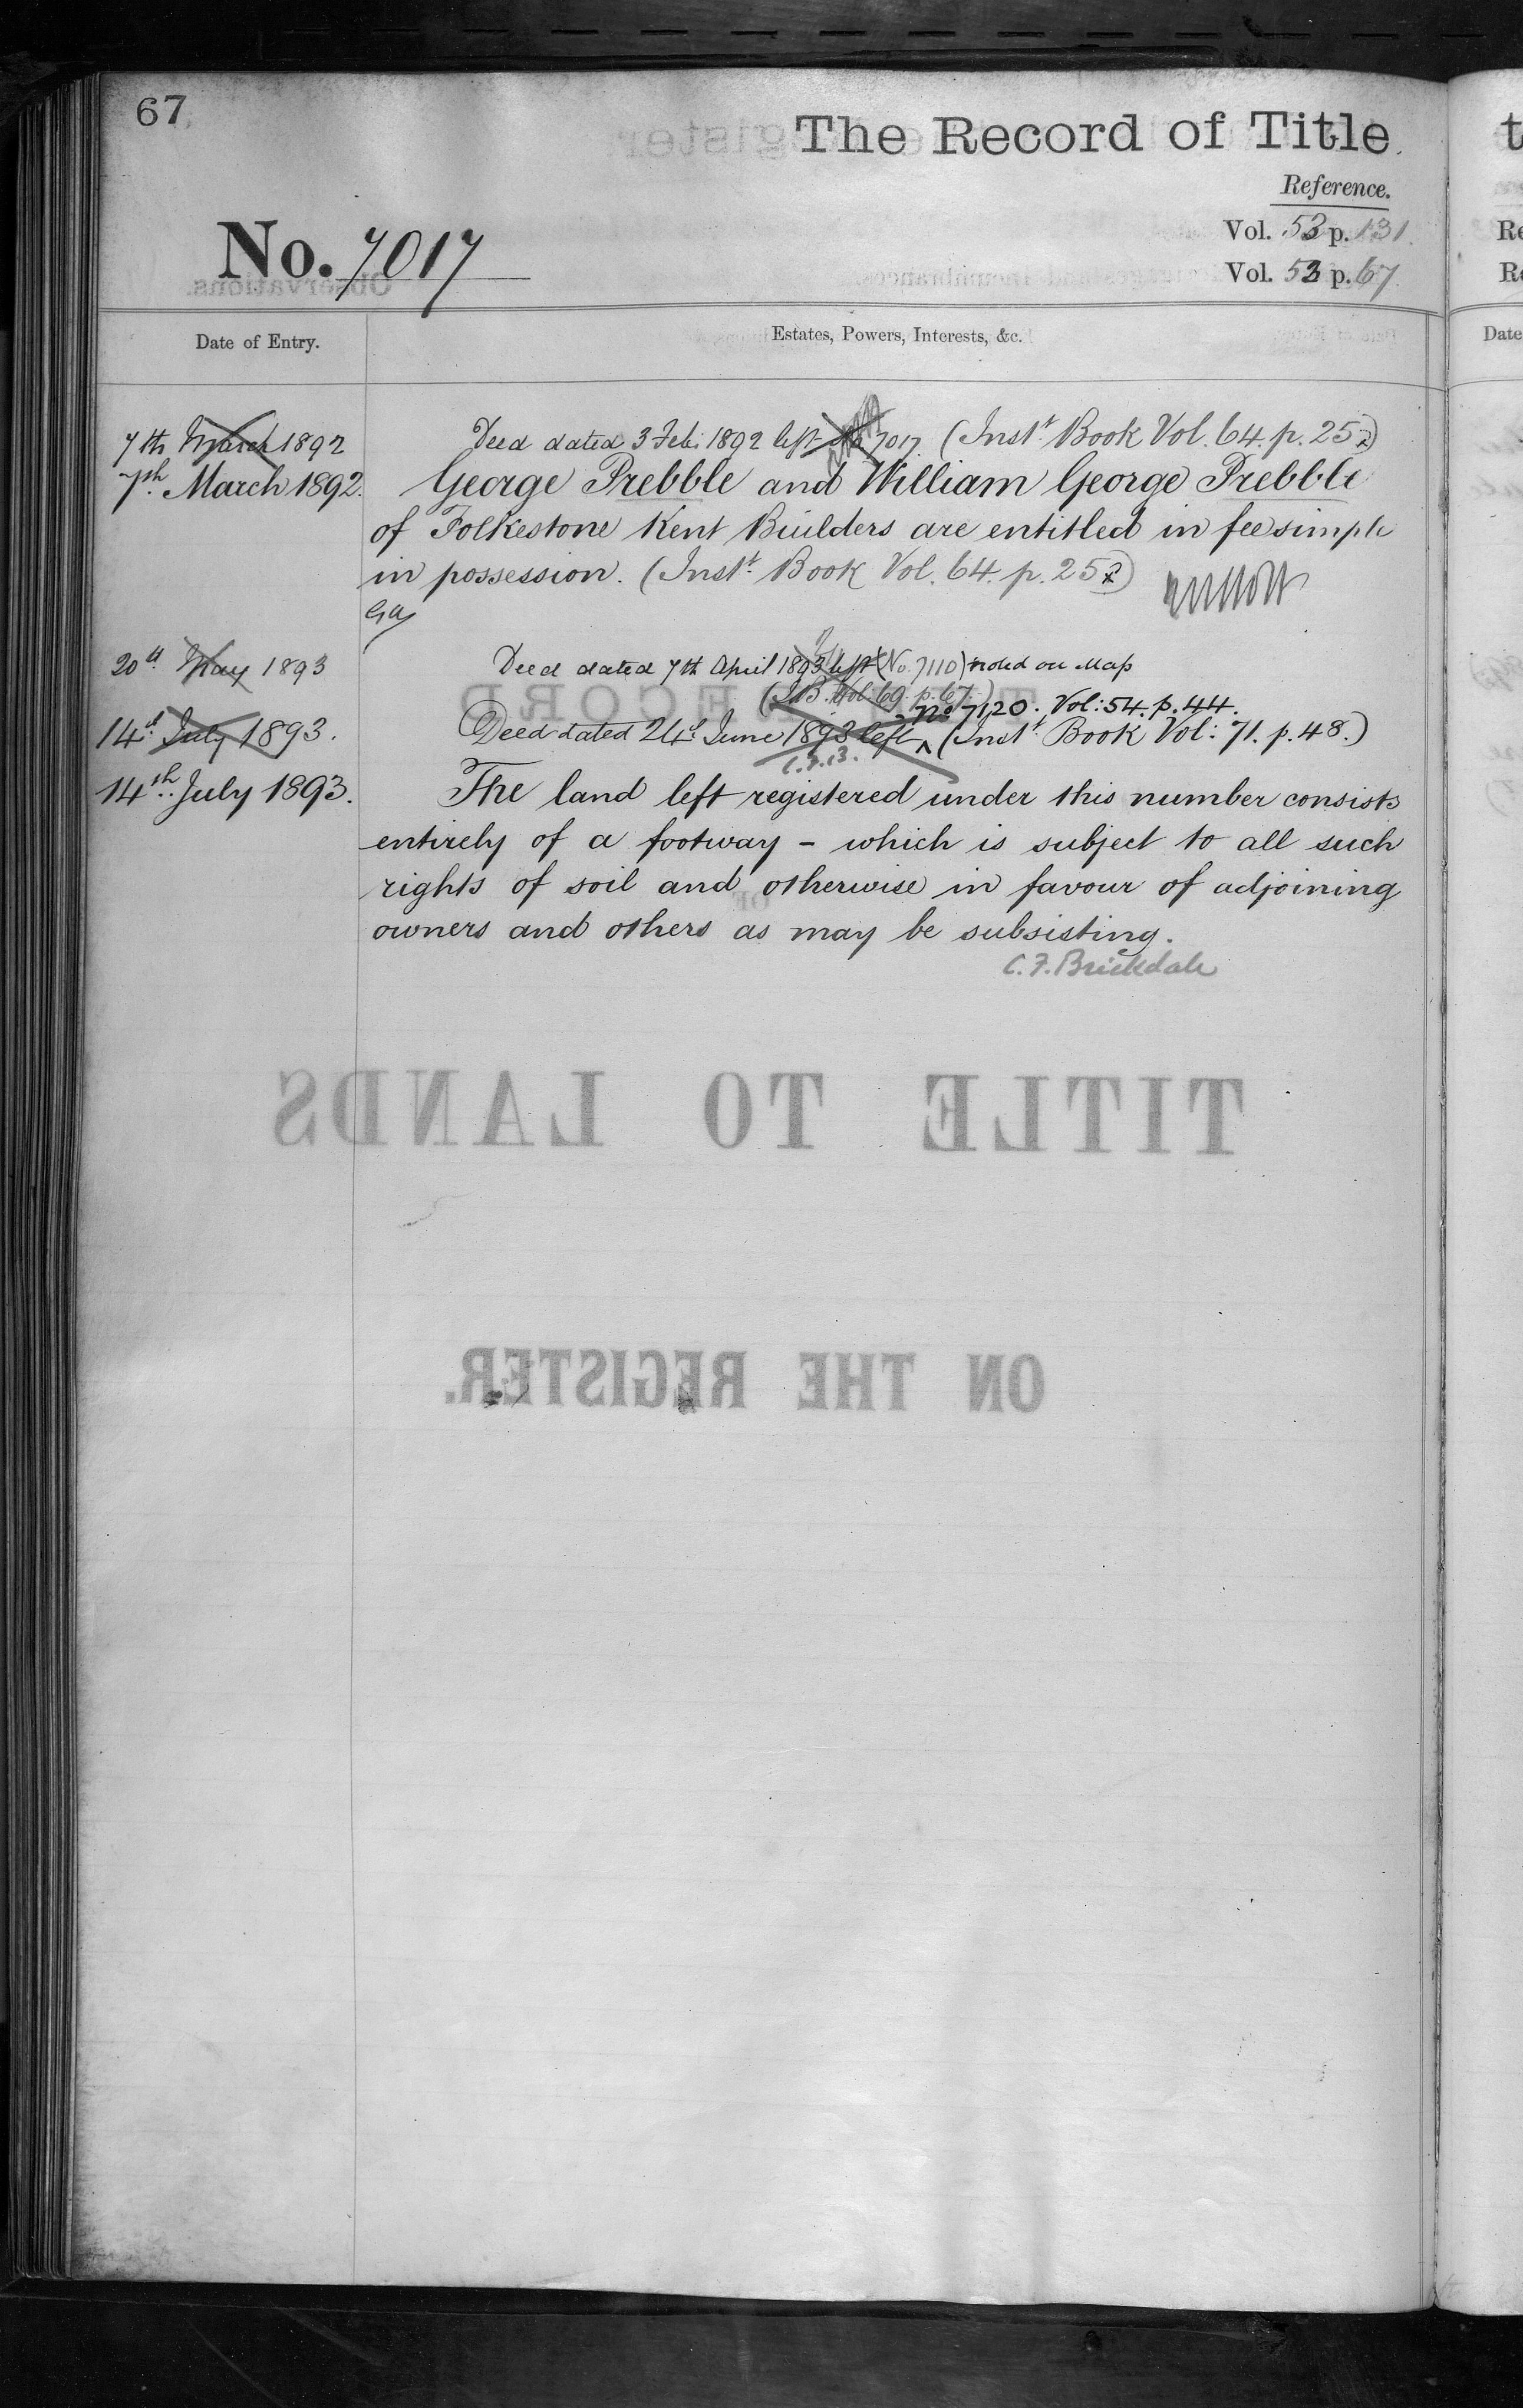 67
The Record of Title
Reference.
No. 7017
Vol. 53 p. 131.
Vol. 53 p. 67.
Date of Entry.
Estates, Powers, Interests, &c.
7th March 1892
Deed dated 3 Feb: 1892 left No 7017. (Inst.t Book Vol. 64. p. 252)
7th. March 1892.
George Prebble and William George Prebble
of Folkestone Kent Builders are entitled in fee simple
in possession. (Inst.t Book Vol. 64. p. 252)
20th May 1893
Deed dated 7th April 1893 left (No. 7110) noted on Map
(I.B. Vol. 69. p. 67.)
No 7120. Vol: 54. p. 44.
14th July 1893.
Deed dated 24th June 1893 left ^ (Inst.t Book Vol: 71. p. 48.)
C.F.B.
14th. July 1893.
The land left registered under this number consists
entirely of a footway - which is subject to all such
rights of soil and otherwise in favour of adjoining
owners and others as may be subsisting.
C. F. Brickdale
RECORD
OF
TITLE TO LANDS
ON THE REGISTER.
t
Re
Re
Date